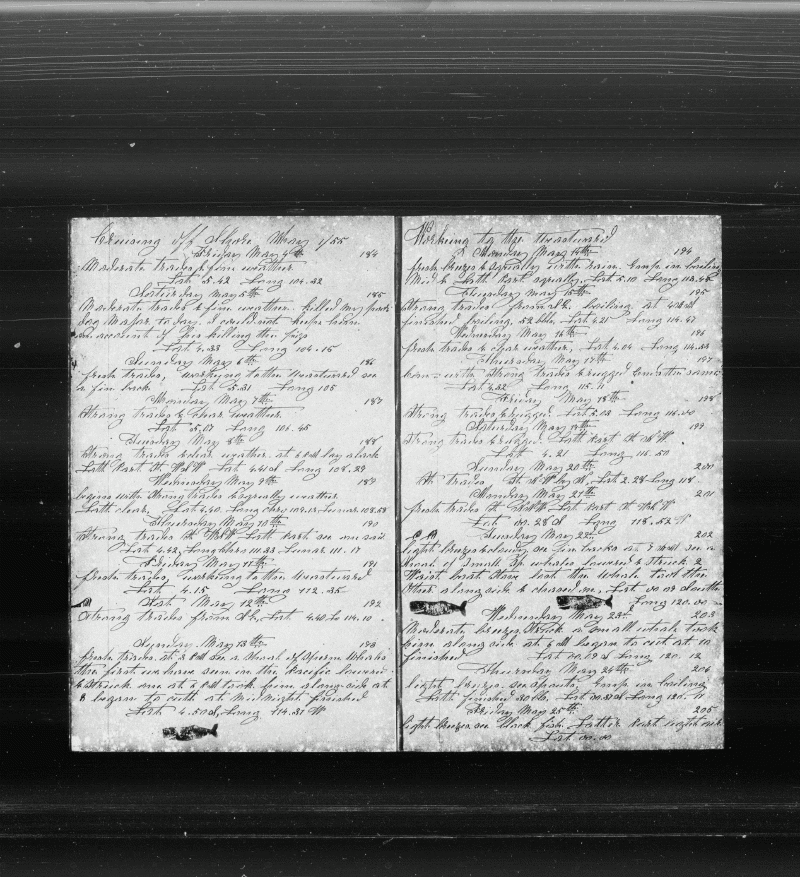 Cruising off Shore May 1/55
Friday May 4th 184
Moderate trades & fine weather
Lat 5.42 Long 104.32
Saturday May 5th 185
Moderate trades & fine weather killed my
dog Major to day. I could not keep him
on account of his killing the pigs
Lat 4.33 Long 104.15
Sunday May 6th 186
fresh trades, working to the Westward see
a fin back Lat 5.31 Long 105
Monday May 7th 187
Strong trades & clear weather
Lat 5.07 Long 106.45
Tuesday May 8th 188
Strong trades & clear weather. at 6 PM lay aback
Latt Part St W&W Lat 4.41 Long 108.29
Wednesday May 9th 189
begins with strong trades & squally weather
Latt clear. Lat 4.40. Long chro 109.13 Lunar 108.58
Thursday May 10th 190
Strong trades St Latt Part see on sail
Lat 4.42, Long chro 111.33 Lunar 111.17
Friday May 11th 191
fresh trades, working to the Westward
Lat 4.15 Long 112.35
Sat May 12th 192
Strong trades from Lat 4.40 Lo 114.10
Sunday May 13th 193
fresh trades. at 3 PM see a shoal of Sperm Whales
the first we have seen in the Pacific lowered
& Struck one at 4 PM took him along side at
8 began to cut at Mid Night finished
Lat 4.50 Long 114.31 W
Working to the Westward
Monday May 14th 194
fresh breezes & squally with rain. Emp in boiling
Mid & Latt Part squally. Lat 5.10 Long 114.45
Tuesday May 15th 195
Strong trades from boiling at
finished boiling, 52 bbls, Lat 4.21 Long 114.47
Wednesday May 16th 196
fresh trades & clear weather, Lat 4.04 Long 114.33
Thursday May 17th 197
Com with strong trades & rugged same
Lat 4.32 Long 115.11
Friday May 18th 198
Strong trades & rugged Lat 5.03 Long 116.00
Saturday May 19th 199
Strong trades & rugged. Latt Part St W
Lat 4.21 Long 116.50
Sunday May 20th 200
trades St W by N, Lat 2.28 Long 118
Monday May 21th 201
fresh trades St Latt Part St W
Lat 00.28 Long 118.52 W
Tuesday May 22d 202
light breezes & cloudy see fin backs at 7 AM see a
shoal of small Sp whales lowered & Struck 2
Waist boat took the whale took the
other along side & cleared in, Lat 00.03 South
Long 120.00 W
Wednesday May 23d 203
Moderate breezes Struck a small whale took
him along side at 6 PM began to cut at 10
finished Lat 00.09 Long 120.12
Thursday May 24th 204
light breezes Emp in boiling
Latt finished 30 bbls, Lat Long 120.
Friday May 25th 205
light breezes see black fish. Latter Part light air
Lat 00.00